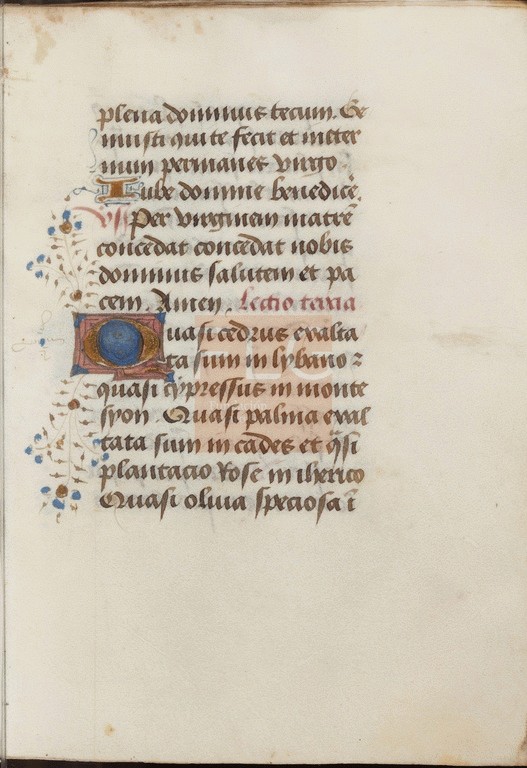 plena dominus tecum. Ge
nuisti qui te fecit et ineter
num permanes virgo.
Iube domne benedicē.
Per virginem matrē
concedat concedat nobis
dominus salutem et pa
cem. Amen. Lectio tercia
Quasi cedrus exalta
ta sum in lybano ⁊
quasi cypressus in monte
syon. Quasi palma exal
tata sum in cades et q̄si
plantacio Rose in iherico
Quasi oliua speciosa ī